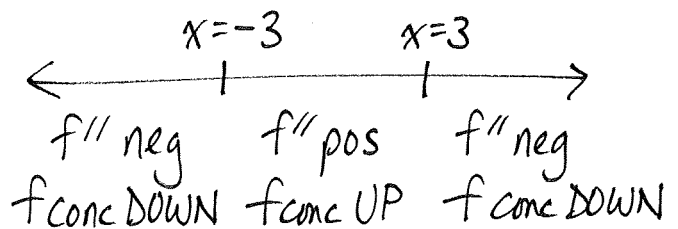 x=-3 x=3
f″ neg f″ pos f″ neg
f conc DOWN f conc UP f conc DOWN